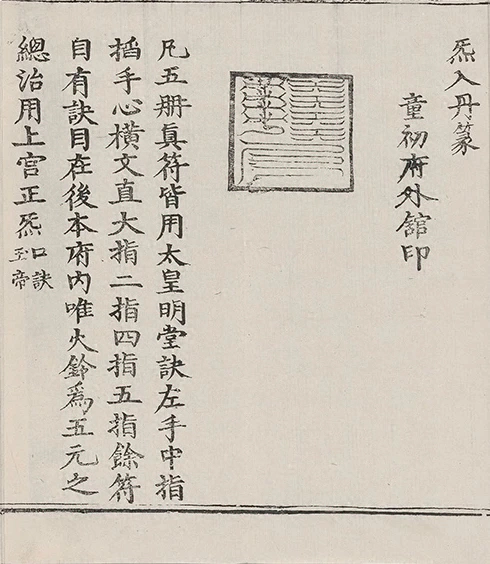 炁入丹篆
童初府外舘印
凡五册眞符皆用太皇明堂訣左手中指
搯手心橫文直大指二指四指五指餘符
自有訣目在後本府内唯火鈴爲五元之
總治用上宫正炁口訣
玉帝